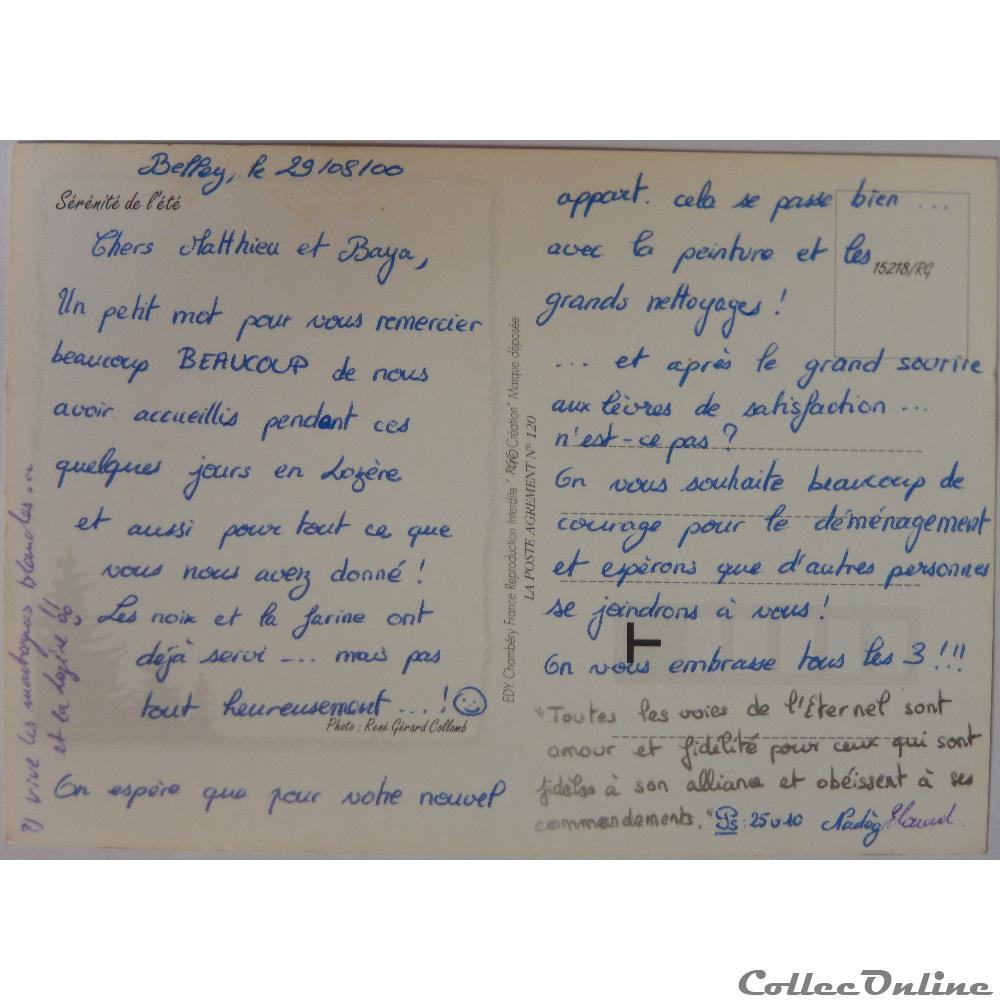 Belley, le 29/08/00
Sérénité de l'été
Chers Matthieu et Baya,
Un petit mot pour vous remercier
beaucoup BEAUCOUP de nous
avoir accueillis pendant ces
quelques jours en Lozère
et aussi pour tout ce que
vous nous avez donné !
Les noix et la farine ont
déjà servi .... mais pas
tout heureusement ....!
Photo : René Gérard Collomb
On espère que pour votre nouvel
vive les blancles...
et la Lozère !!
EDY Chambéry France Reproduction Interdite " RGC Création" Marque déposée
LA POSTE AGREMENT N° 120
appart. cela se passe bien ...
avec la peinture et les
15218/RG
grands nettoyages !
... et après le grand sourire
aux lèvres de satisfaction ...
n'est-ce pas ?
On vous souhaite beaucoup de
courage pour le déménagement
et espérons que d'autres personnes
se joindrons à vous !
T
On vous embrasse tous les 3 !!!
"Toutes les voies de l'Eternel sont
amour et fidélité pour ceux qui sont
fidèles à son alliance et obéissent à ses
commandements." Ps : 25 v 10 Nadèg
CollecOnline